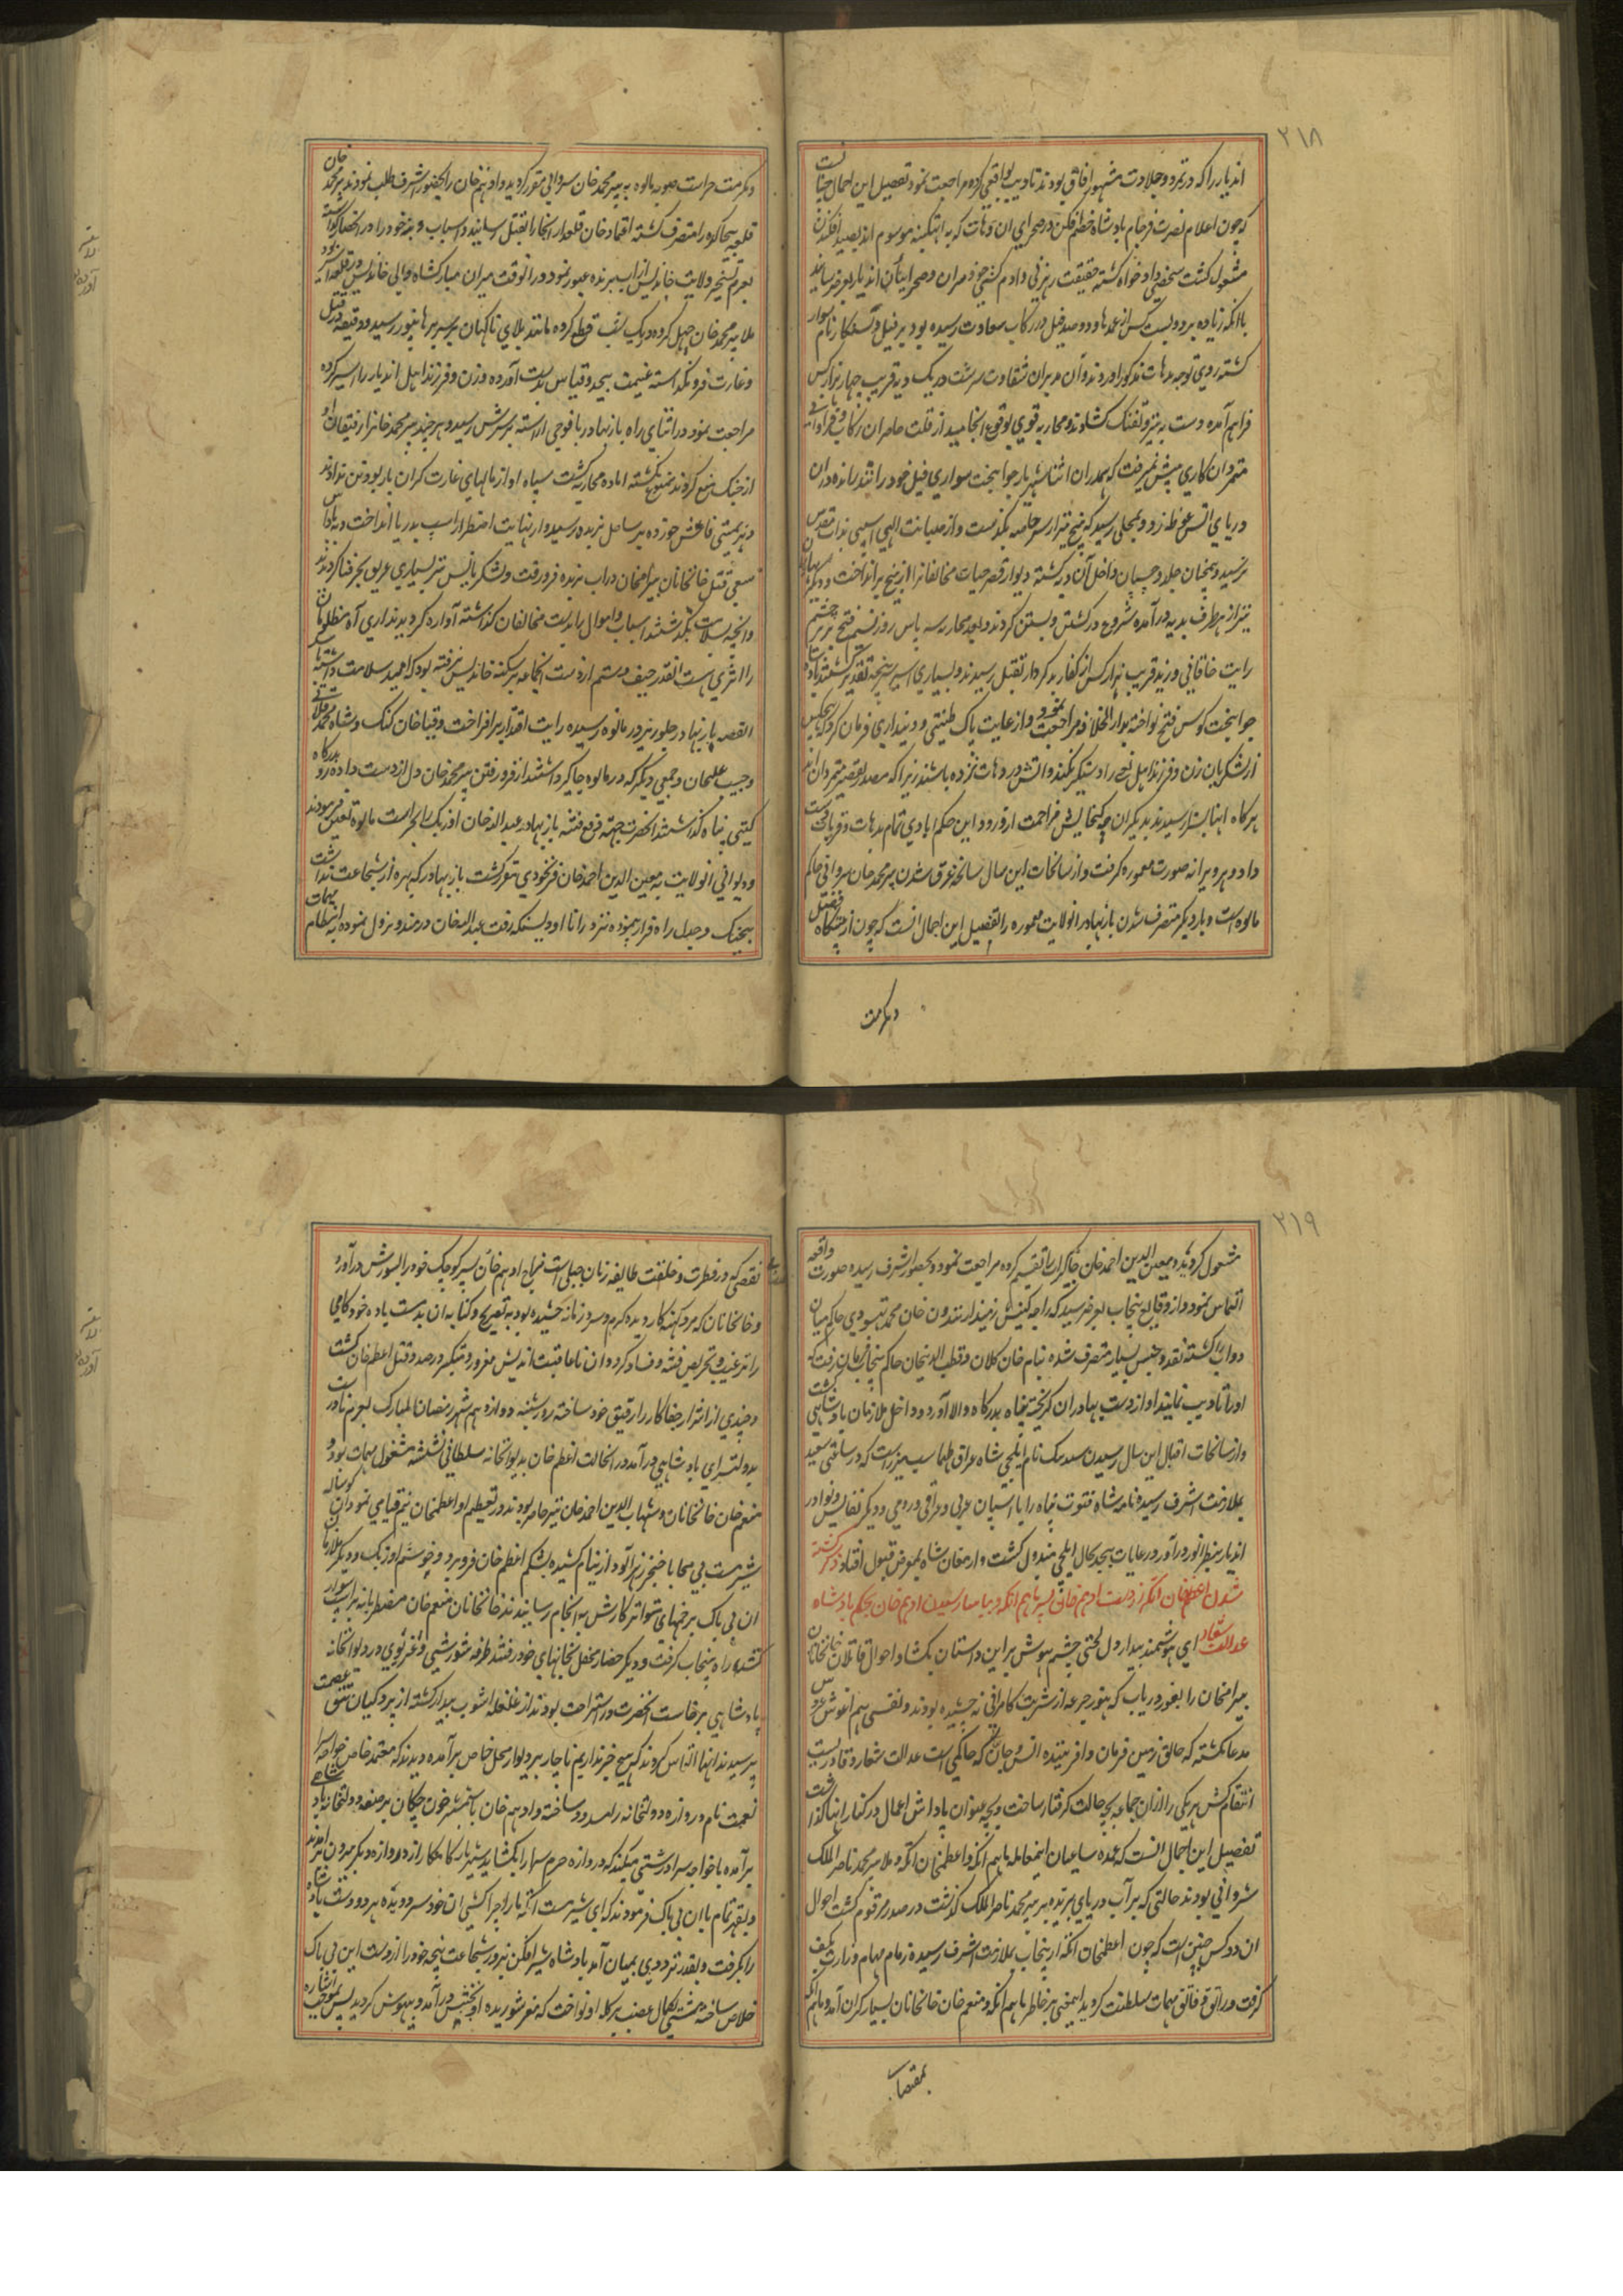 ۲۱۸
اندیار را که در تمرد و جلادت مشهور آفاق بودند تادیب واقعی کرده مراجعت نمود تفصیل این اجمال چنانست
که چون اعلام نصرت فرجام بادشاه ضیغم فکن در صحرای ان دهات که به موسوم اند بصید افکندن
مشغول کشت شخصی داد خواه کشته حقیقت رهزنی و ادم کشی و صحرا اندیار بعرض رسانید
با انکه زیاده بر دویست کس از عمدها و دو صد فیل در رکاب سعادت رسیده بود بر فیل سوار
کشته روی توجه بدهات مذکور اوردند و آن مدبران شقاوت سرشت در یک دیه قریب چهار هزار کس
فراهم آمده دست به تیر و تفنک کشادند و محاربه قوی بوقوع انجامید از قلت حاضران رکاب و فراوانی
متمردان کاری پیش نمیرفت که همدران اثنا شهریار جوانبخت سواری فیل خود را تند رانده دران
دریای اتش غوطه زد و بمحلی رسید که پنج تیر از سر خاصه بگذشت و از صیانت الهی اسیبی بذات مقدس
نرسید و همچنان جلد و چسپان داخل آن دیه کشته دیوار قصر حیات مخالفانرا از بیخ بر انداخت و دیکر بهادران
نیز از هر طرف بدیه در آمده شروع در کشتن و بستن کردند و بعد محاربه سه پاس روز نسیم فتح بر پرچم
رایت خاقانی وزید قریب هزار کس از کفار بد کردار بقتل رسیدند و بسیاری اسیر سرپنجه تقدیر کشتند بادشاه
جوانبخت کوس فتح نواخته بدار الخلافه مراجعت نمود و از غایت پاک طینتی و دینداری فرمان کرد که هیچکس
از لشکریان زن و فرزند اهل را دستکیر نکنند و اتش در دهات نزده باشند زیرا که مصدر تقصیر متمردان اند
هرکاه اینها بسزا رسیدند بدیکران چه کنجایش مزاحمت از ورود این حکم ابادی تمام بدهات و قریات
داد و هر ویرانه صورت معموره کرفت و از سانحات این سال سانحه غرق شدن پیر محمد خان سروانی حاکم
مالوه است و بار دیکر متصرف شدن باز بهادر انولایت معموره را تفصیل این اجمال انست که چون از پیشکاه فضل
و کرمت
و کرمت حراست صوبه مالوه به پیر محمد خان سروانی مقرر کردید و ادهم خان را بحضور اشرف طلب نمودند پیر محمد خان
قلعه بیجاکره را متصرف کشته اعتماد خان قلعدار انجا را بقتل رسانید و اسباب و بنه خود را در انحصار کذاشته
بعزم تسخیر ولایت خاندیس از اب نربده عبور نمود در انوقت میران مبارکشاه والی خاندیس در قلعه اسیر بود
ملا پیر محمد خان چهل کروه در یک شب قطع کرده مانند بلای ناکهان بر سر برهانپور رسید و دقیقه در قتل
و غارت فرو نکذاشته غنیمت بیحد و قیاس بدست آورده و زن و فرزند اهل اندیار را اسیر کرده
مراجعت نمود در اثنای راه باز بهادر با فوجی اراسته بر سرش رسید و هر چند پیر محمد خانرا رفیقان او
از جنک منع کردند ممنوع نکشته اماده محاربه کشت سپاه او از مالهای غارت کران بار بود تن نداده
هزیمتی فاحش خورده بر ساحل نربده رسید و از نهایت اضطرار اسپ بدریا انداخت و بپاداش
سعی قتل خانخانان بیرامخان دراب نربده فرو رفت و لشکریانش نیز بسیاری غریق بحر فنا کردیدند
و انچه بسلامت بکذشتند اسباب و اموال را بدست مخالفان کذاشته آواره کردیدند اری آه مظلومان
را اثری است انقدر حیف و ستم از دست انجماعه بر سکنه خاندیس نرفته بود که امید سلامت داشته باشند
القصه باز بهادر جلو ریز در مالوه رسیده رایت اقتدار بر افراخت و قیاخان کنک و شاه محمد قندهاری
و حبیب علیخان و جمعی دیکر که در مالوه جاکیر داشتند از فرو رفتن پیر محمد خان دل از دست داده رو بدرکاه
کیتی پناه کذاشتند انحضرت بجهت دفع فتنه باز بهادر عبدالله خان اوزبک را بحراست مالوه تعین فرمودند
و دیوانی انولایت به معین الدین احمد خان فرنخودی مقرر کشت باز بهادر که بهره از شجاعت نداشت
بیجنک و جدل راه فرار پیموده نزد رانا اودیسنکه رفت عبدالله خان در مندو نزول نموده به انتظام مهمات
۲۱۹
مشغول کردید و معین الدین احمد خان جاکیرات تقسیم کرده مراجعت نمود و بحضور اشرف رسیده صورت واقعه
التماس نمود و از وقایع پنجاب بعرض رسید که راجه کنیش زمیندار نندون خان محمد بهسودی حاکم میان
دواب را کشته نقد و جنس بسیار متصرف شده بنام خان کلان و قطب الدینخان حاکم پنجاب فرمان رفت که
او را تادیب نمایند او از دست بهادران کریخته پناه بدرکاه والا آورد و داخل ملازمان بادشاهی کشت
و از سانحات اقبال این سال رسیدن سید بیک نام ایلچی شاه عراق طهماسب میرزا است که در ساعتی سعید
بملازمت اشرف رسیده نامه شاه فتوت پناه را با اسپان عربی و عراقی و رومی و دیکر نفایس و نوادر
اندیار بنظر انور در آورد رعایات بیحد بحال ایلچی مبذول کشت و ارمغان شاه بمعرض قبول افتاد ذکر کشته
شدن اعظم خان اتکه از دست ادهم خان پسر ماهم انکه و بسیاست رسیدن ادهم خان بحکم بادشاه
عدالت شعار ای هوشمند بیدار دل لختی چشم هوش بر این داستان بکشا و احوال قاتلان خانخانان
بیرامخان را بغور دریاب که هنوز جرعه از شربت کامرانی نه چشیده بودند و نفسی هم اغوش عروس
مدعا نکشته که خالق زمین و زمان و افریننده انس و جان که حاکمی است عدالت شعار و قادریست
انتقام کش هر یکی را ازان جماعه بچه حالت کرفتار ساخت و بچه عنوان پاداش اعمال در کنار انها کذاشت
تفصیل این اجمال انست که عمده ساعیان اینمعامله ماهم انکه و اعظمخان اتکه و ملا پیر محمد ناصر الملک
شروانی بودند حالتی که بر آب دریای نربده بر پیر محمد ناصر الملک کذشت در صدر مرقوم کشت احوال
ان دو کس چنین است که چون اعظمخان اتکه از پنجاب بملازمت اشرف رسیده زمام مهام وزارت بکف
کرفت و راتق و فاتق مهمات سلطنت کردید اینمعنی بر خاطر ماهم انکه و منعم خان خانخانان بسیار کران آمد و ماهم انکه
بمقتضای
نقصی که در فطرت و خلقت طایفه زنان جبلی است مزاج ادهم خان پسر کوچک خود را بشورش در آورد
و خانخانان که مرد کهنه کار دیده کرم و سرد زمانه چشیده بود به تصریح و کنایه ان بدست باده خود کامی
را ترغیب و تحریص فتنه و فساد کرد و ان ناعاقبت اندیش مغرور و متکبر در صدد قتل اعظم خان کشت
و چندی از اشرار جفاکار را رفیق خود ساخته روز شنبه دوازدهم شهر رمضان المبارک بعزم نادرست
بدولتسرای بادشاهی در آمد در انحالت اعظم خان بدیوانخانه سلطانی نشسته مشغول مهمات بود و
منعم خان خانخانان و شهاب الدین احمد خان نیز حاضر بودند در تعظیم او اعظمخان نیم قیامی نمود ان کوساله
شیر مست بی محابا خنجر زهر آلود از نیام کشیده بشکم اعظم خان فرو برد و خوشم اوزبک و دیکر ملازمان
ان بی باک بزخمهای متواتر کارش به انجام رسانیدند خانخانان منعم خان مضطربانه بر اسپ سوار
کشته راه پنجاب کرفت و دیکر حضار محفل بخانهای خود رفتند طرفه شورشی و غریوی در دیوانخانه
بادشاهی برخاست انحضرت در استراحت بودند از غلغله اشوب بیدار کشته از پردکیان تتق عصمت
پرسیدند انها التماس کردند که هیچ خبر نداریم ناچار بر دیوار محل خاص بر آمده دیدند که معتمد خاص خواجه سرا
نعمت نام دروازه دولتخانه را مسدود ساخته و ادهم خان با شمشیر خون چکان بر صفه دولتخانه بادشاهی
بر آمده با خواجه سرا درشتی میکند که دروازه حرم سرا را بکشاید شهریار کامکار از دروازه دیکر بیرون آمدند
و بقهر تمام با ان بی باک فرمودند که ای شیر مست اتکه ما را چرا کشتی ان خود سر دویده هر دو دست بادشاه
را بکرفت و بقدر تردودی بمیان آمد بادشاه شیر افکن بزور شجاعت پنجه خود را از دست این بی باک
خلاص ساخته مشتی بکمال غضب بر کله او نواخت که مغز شوریده او بجنبش در آمد و بیهوش کردید پس بموجب اشاره